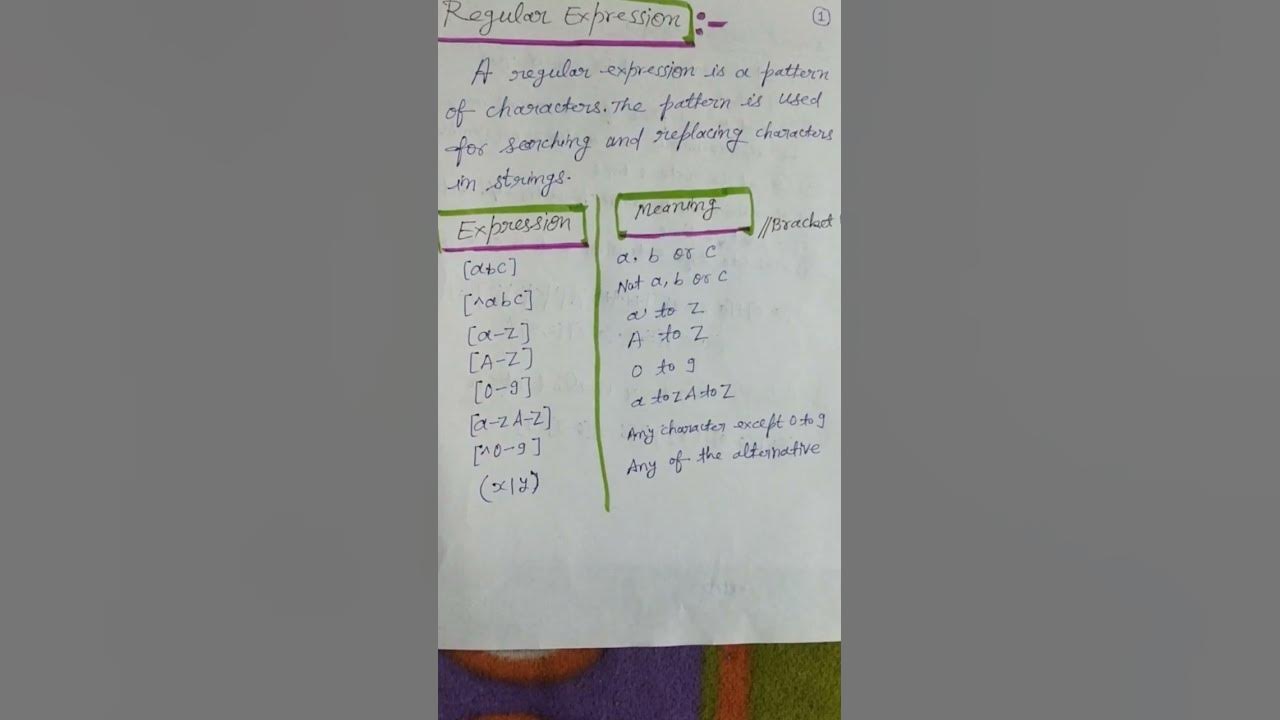 Regular Expression :-
①
A regular expression is a pattern
of characters. The pattern is used
for serching and replacing characters
in strings.
Expression
Meaning
//Bracket
[abc]
a. b or c
[^abc]
Not a, b or c
[a-z]
a to z
[A-Z]
A to Z
[0-9]
0 to 9
[a-zA-Z]
a to z A to Z
[^0-9]
Any character except 0 to 9
(x|y)
Any of the alternative